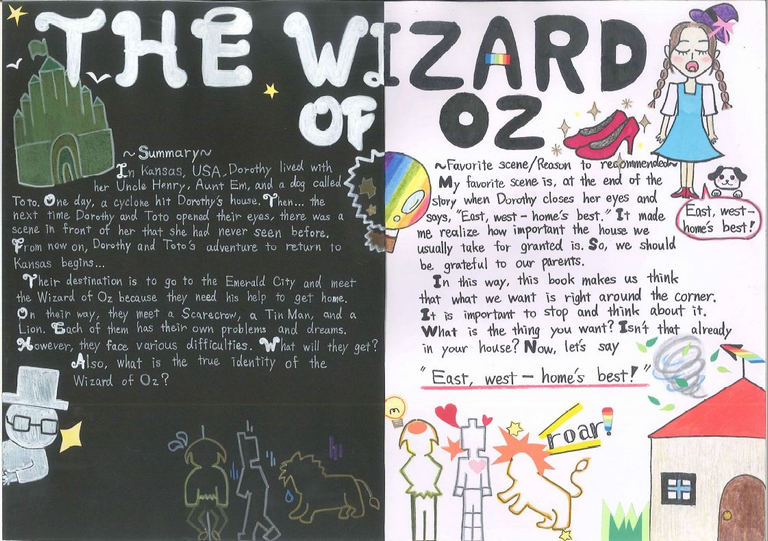 THE WIZARD
OF OZ
~Summary~
In Kansas, USA, Dorothy lived with
her Uncle Henry, Aunt Em, and a dog called
Toto. One day, a cyclone hit Dorothy's house. Then... the
next time Dorothy and Toto opened their eyes, there was a
scene in front of her that she had never seen before.
From now on, Dorothy and Toto's adventure to return to
Kansas begins...
Their destination is to go to the Emerald City and meet
the Wizard of Oz because they need his help to get home.
On their way, they meet a Scarecrow, a Tin Man, and a
Lion. Each of them has their own problems and dreams.
However, they face various difficulties. What will they get?
Also, what is the true identity of the
Wizard of Oz?
hi
~Favorite scene/Reason to recommended~
My favorite scene is, at the end of the
story when Dorothy closes her eyes and
says, "East, west-home's best." It made
me realize how important the house we
usually take for granted is. So, we should
be grateful to our parents.
In this way, this book makes us think
that what we want is right around the corner.
It is important to stop and think about it.
What is the thing you want? Isn't that already
in your house? Now, let's say
"East, west-home's best!"
East, west-
home's best!
roar!